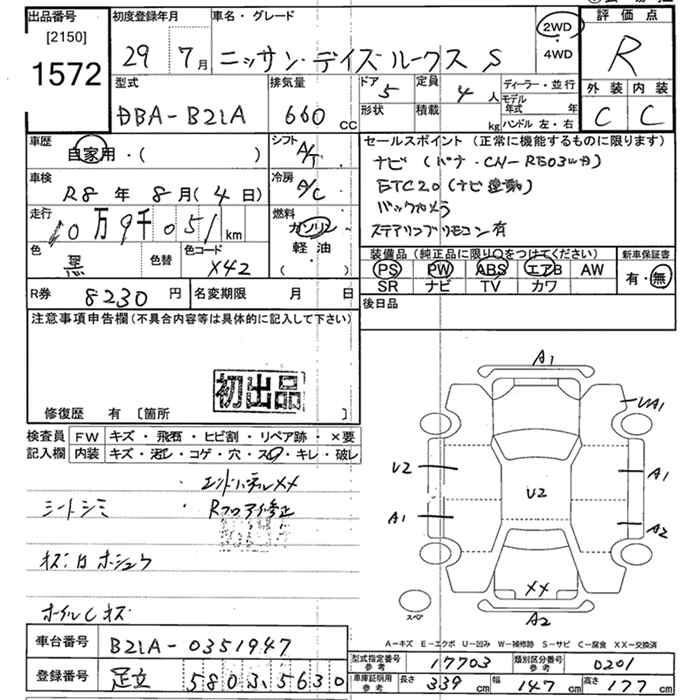 出品番号
[2150]
1572
初度登録年月
29 7月
車名・グレード
ニッサン・デイズルークス S
2WD
4WD
評価点
R
型式
DBA-B21A
排気量
660 CC
ドア
5
定員
4人
形状
積載
kg
ディーラー・並行
モデル
年式 年
ハンドル 左・右
外装 内装
C C
車歴
自家用・( )
シフト
A/T
車検
R8年8月(4日)
冷房
A/C
走行
10万9千051 km
燃料
ガソリン
軽油
( )
色
黒
色替
色コード
X42
R券
8230円
名変期限 月 日
セールスポイント(正常に機能するものに限ります)
ナビ(パナ・CN-RE03WD)
ETC2.0(ナビ連動)
バックカメラ
ステアリングリモコン有
装備品(純正品に限り○をつけてください)
PS PW ABS エアB AW
SR ナビ TV カワ
新車保証書
有・無
後日品
注意事項申告欄(不具合内容等は具体的に記入して下さい)
初出品
修復歴 有 [箇所 ]
検査員
記入欄
FW キズ・飛石・ヒビ割・リペア跡・×要
内装 キズ・汚レ・コゲ・穴・スレ・キレ・破レ
シートシミ
・エンドパネルXX
・Rフロア修正
ホイルCキズ
A1
UA1
U2
A1
U2
A1
A2
XX
A2
スペア
A-キズ E-エクボ U-凹み W-補修跡 S-サビ C-腐食 XX-交換済
車台番号
B21A-0351947
登録番号
足立 580 ネ 5630
型式指定番号
参考
17703
類別区分番号
参考
0201
車庫証明用
参考
長さ 339cm
幅 147cm
高さ 177cm